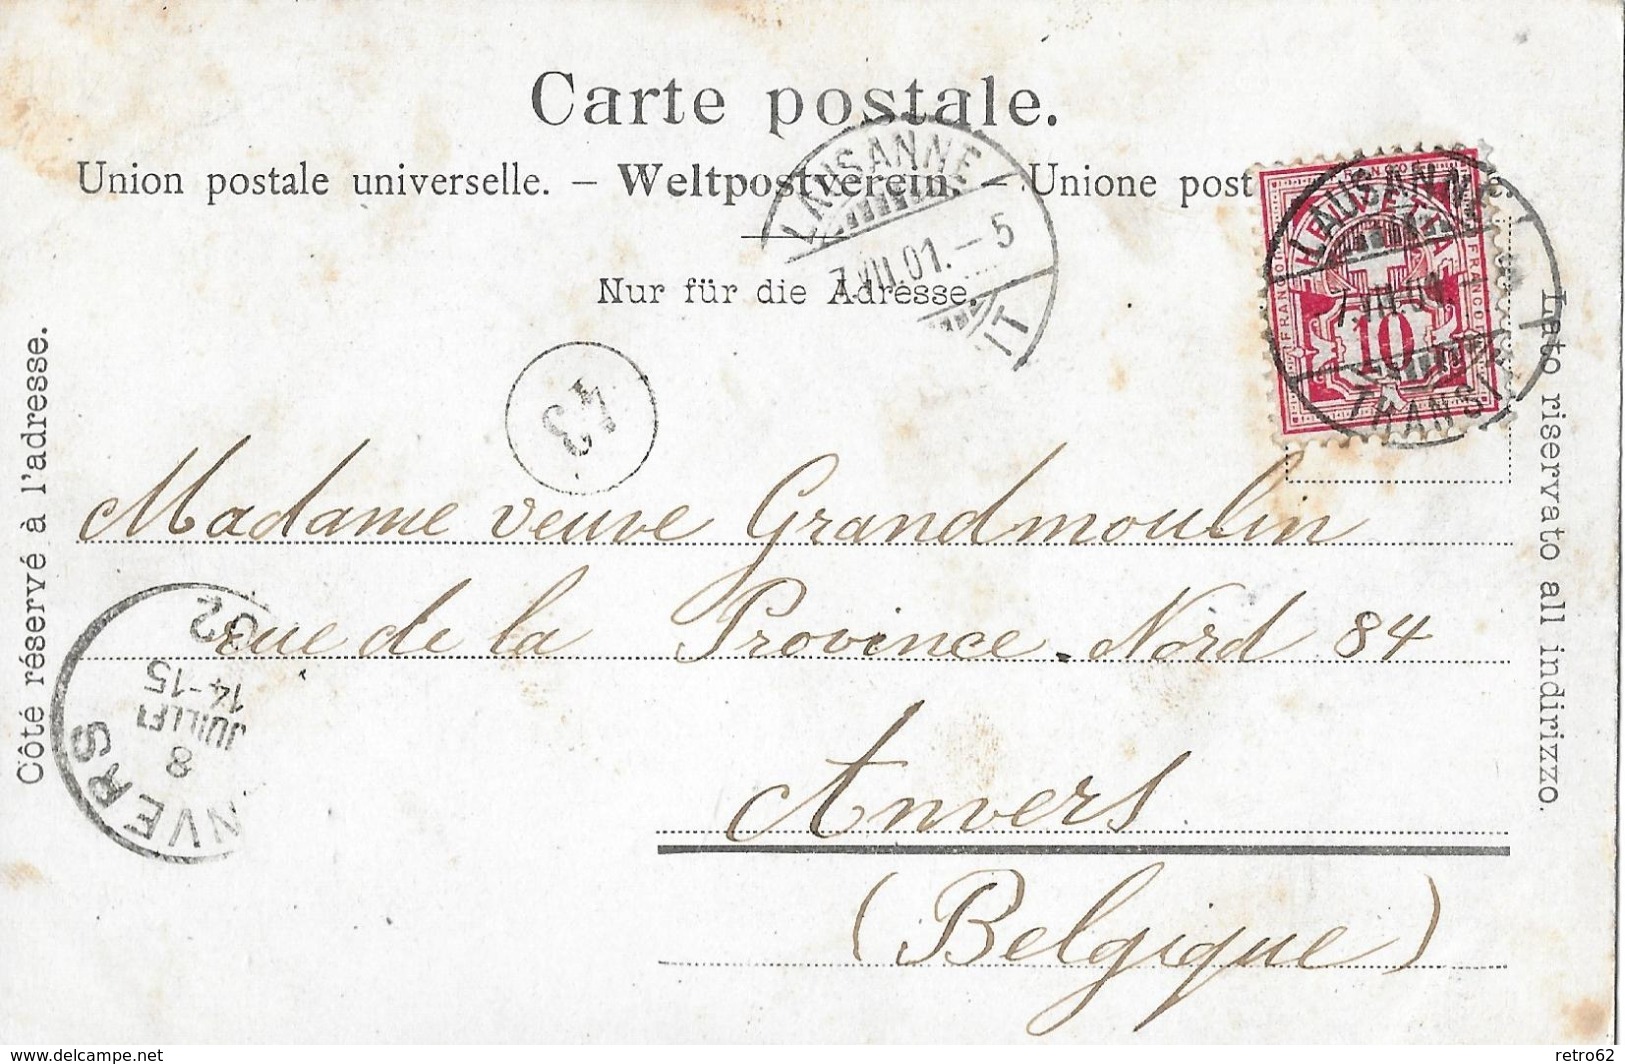 Carte postale.
Union postale universelle. – Weltpostverein. – Unione post
Nur für die Adresse.
LAUSANNE
7.VII.01.–5
IT
HELVETIA
FRANCO
FRANCO
10
LAUSANNE
7.VII.01.–
TRANSIT
43
Côté réservé à l'adresse.
Lato riservato all indirizzo.
Madame veuve Grandmoulin
rue de la Province Nord 84
Anvers
(Belgique)
NVERS
8
JUILLET
14-15
delcampe.net
retro62